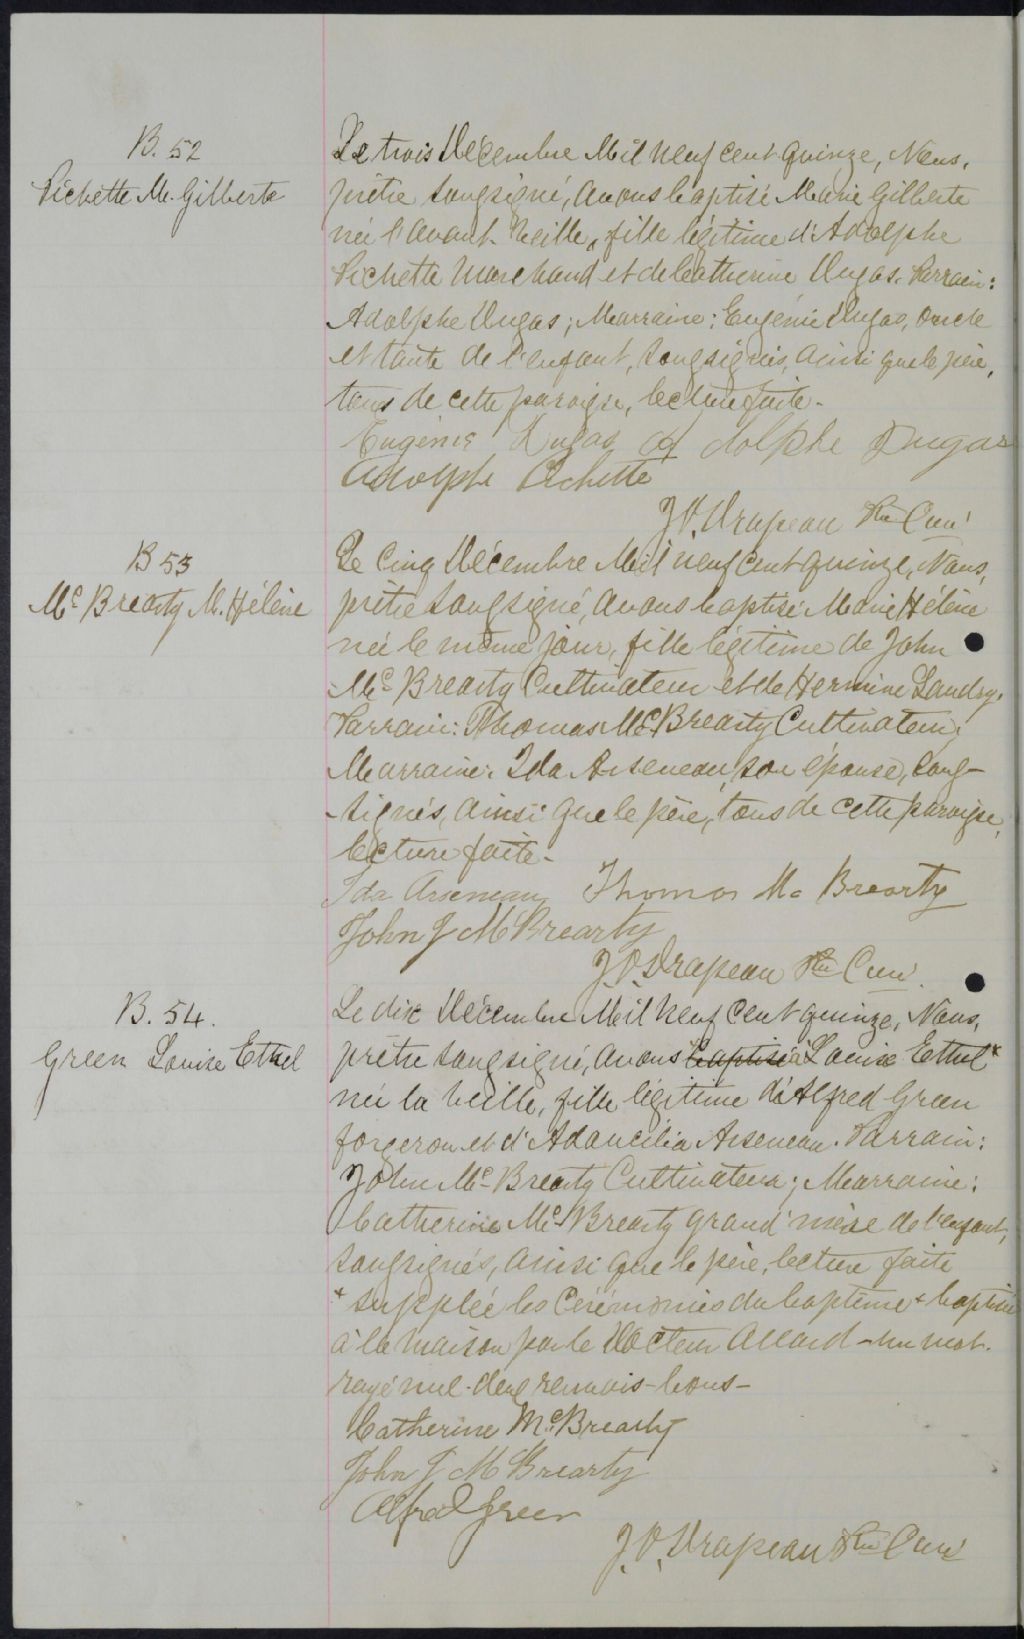 B. 52
Pichette M. Gilberte
Le trois Décembre Mil neuf cent quinze, Nous,
prêtre soussigné, avons baptisé Marie Gilberte
née l'avant-veille, fille légitime d'Adolphe
Pichette Marchand et de Catherine Dugas. Parrain:
Adolphe Dugas; Marraine: Eugénie Dugas, oncle
et tante de l'enfant, soussignés, ainsi que le père,
tous de cette paroisse, lecture faite.
Eugénie Dugas Adolphe Dugas
Adolphe Pichette
J. O. Drapeau Ptre Curé
B 53
Mc Brearty M. Hélène
Le Cinq Décembre Mil neuf cent quinze, Nous,
prêtre soussigné, avons baptisé Marie Hélène
née le même jour, fille légitime de John
Mc Brearty Cultivateur et de Hermine Landry.
Parrain: Thomas Mc Brearty Cultivateur;
Marraine: Ida Arseneau, son épouse, sous-
-signés, ainsi que le père, tous de cette paroisse,
lecture faite-
Ida Arseneau Thomas Mc Brearty
John J McBrearty
J. O. Drapeau Ptre Curé.
B. 54.
Green Louise Ethel
Le dix Décembre Mil neuf cent quinze, Nous,
prêtre soussigné, avons baptisé à Louise Ethel*
née la veille, fille légitime d'Alfred Green
forgeron et d'Adancilia Arseneau. Parrain:
John Mc Brearty Cultivateur; Marraine:
Catherine Mc Brearty grand'mère de l'enfant,
soussignés, ainsi que le père, lecture faite
+ supplée les Cérémonies du baptême + baptisée
à la maison par le Docteur Allard - un mot.
rayé nul. deux renvois - bons -
Catherine McBrearty
John J McBrearty
Alfred Green
J. O. Drapeau Ptre Curé